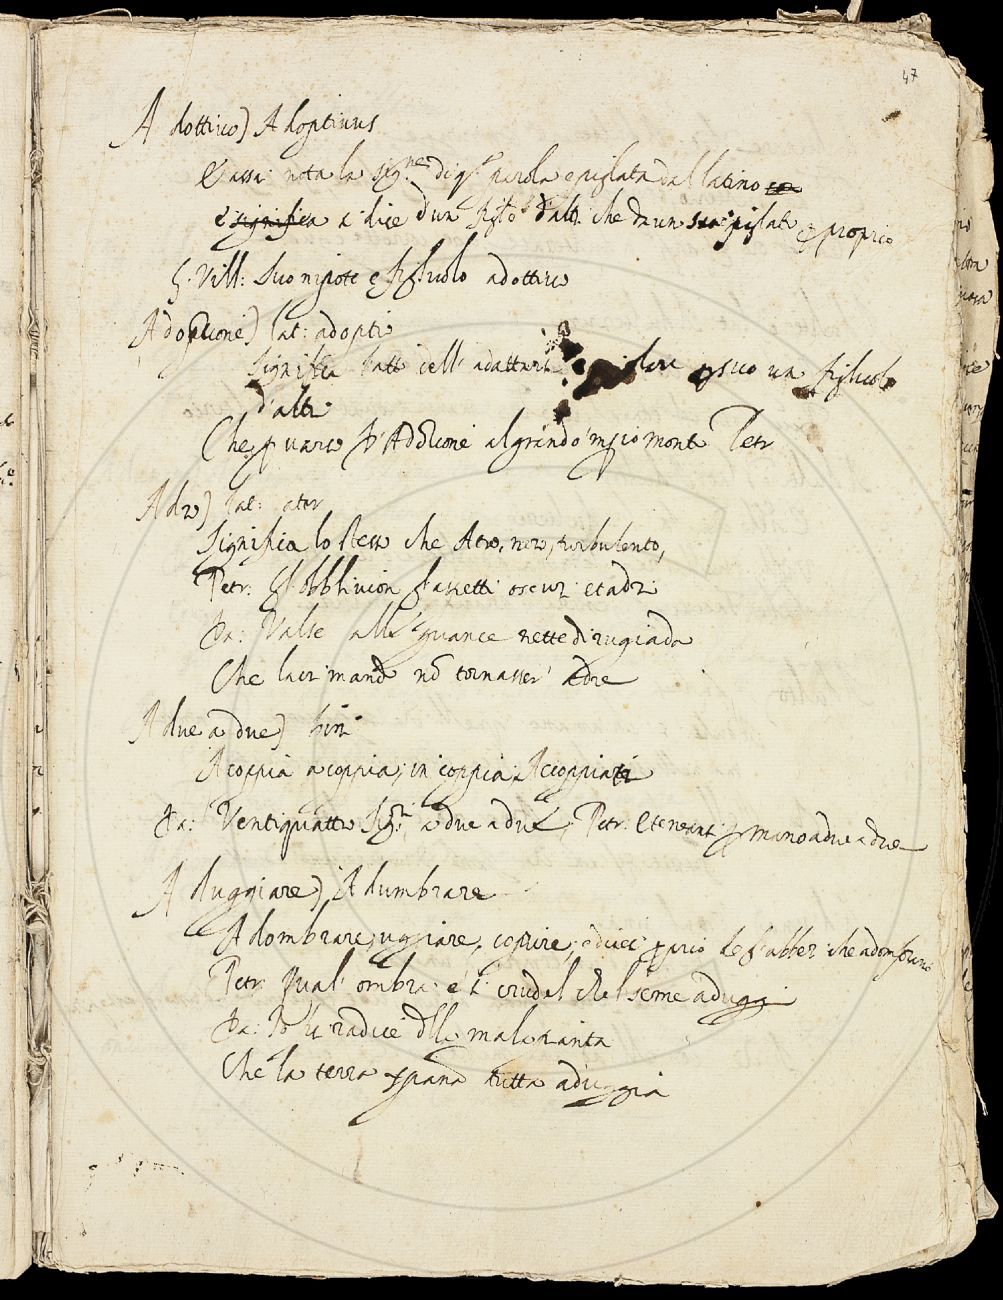 47
Adottivo) Adoptivus
E assai nota la sig.ne di q.a parola e pigliata dal latino
e significa e si dice d'un figlo d'altri che da un sia pigliato per proprio
G. Vill: Suo nipote e figliuolo adottivo
Adozione) lat: adopti
Significa l'atto dell' adattare pigliare per suo un figliuolo
d'altri
Che per vario Petr
Adro) lat: ater
Significa lo stesso che Atro, nero, turbulento,
Petr: gl'obblivion gl'aspetti oscuri et adri
Da: Volse alle guance nette di rugiada
Che lacrimando nō tornasser adre
A due a due) bini
A coppia a coppia; in coppia; Accoppiati
Da: Ventiquattro Sig.ri a due a due; Petr: E teneansi per mano a due a due
Aduggiare) Adumbrare
Adombrare, uggiare, coprire; e dicesi proprio degl'alberi che adombrano
Petr: Qual ombra è sì crudel che 'l seme aduggi
Da: Io fui radice della mala pianta
Che la terra xpiana tutta aduggia